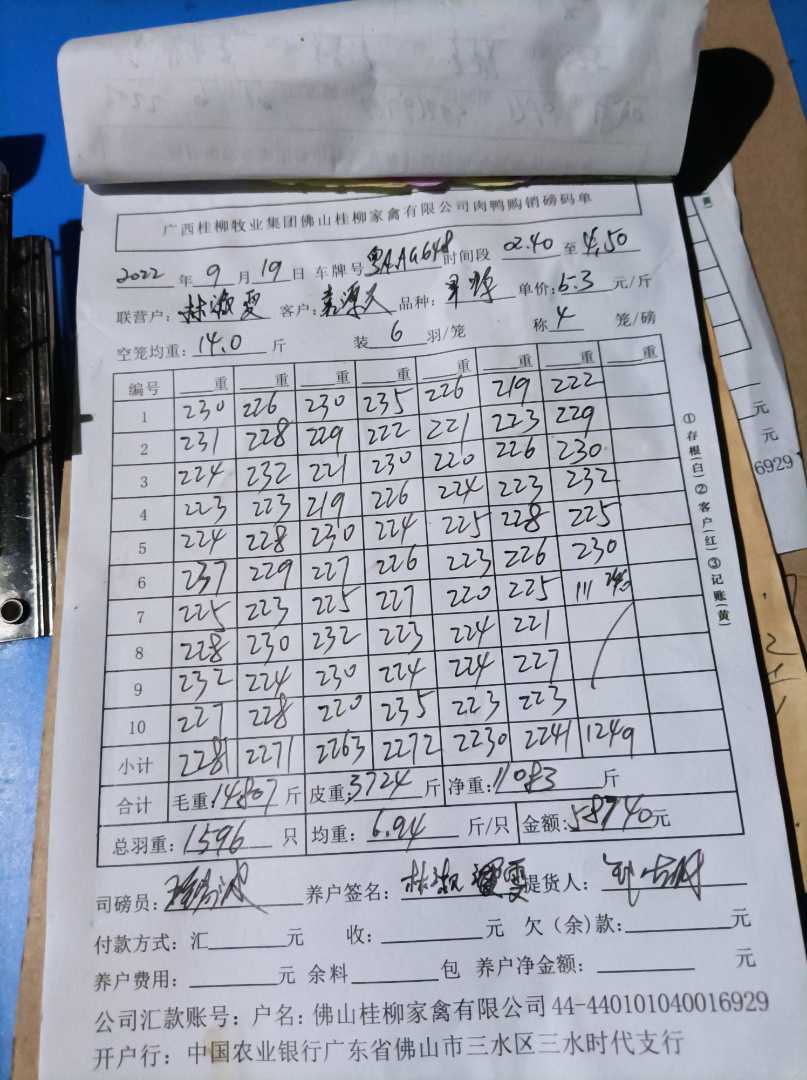 广西桂柳牧业集团佛山桂柳家禽有限公司肉鸭购销磅码单
2022 年 9 月 19 日 车牌号 粤A.AG648 时间段 02.40 至 4,50
联营户: 林淑雯 客户: 品种: 单价: 5.3 元/斤
空笼均重: 14.0 斤 装 6 羽/笼 称 4 笼/磅
编号 重 重 重 重 重 重 重 重
1 230 226 230 235 226 219 222
2 231 228 229 222 221 223 229
3 224 232 221 230 220 226 230
4 223 223 219 226 224 223 232
5 224 228 230 224 225 228 225
6 237 229 227 226 223 226 230
7 225 223 225 227 220 225 111
8 228 230 232 223 224 221
9 232 224 230 224 224 227
10 227 228 220 235 223 223
小计 2281 2271 2263 2272 2230 2241 1249
合计 毛重: 14807 斤 皮重: 3724 斤 净重: 11083 斤
总羽重: 1596 只 均重: 6.94 斤/只 金额: 58740 元
司磅员: 养户签名: 林淑雯 提货人:
付款方式: 汇 元 收: 元 欠(余)款: 元
养户费用: 元 余料 包 养户净金额: 元
公司汇款账号: 户名: 佛山桂柳家禽有限公司 44-440101040016929
开户行: 中国农业银行广东省佛山市三水区三水时代支行
①存根(白)②客户(红)③记账(黄)
元
元
6929